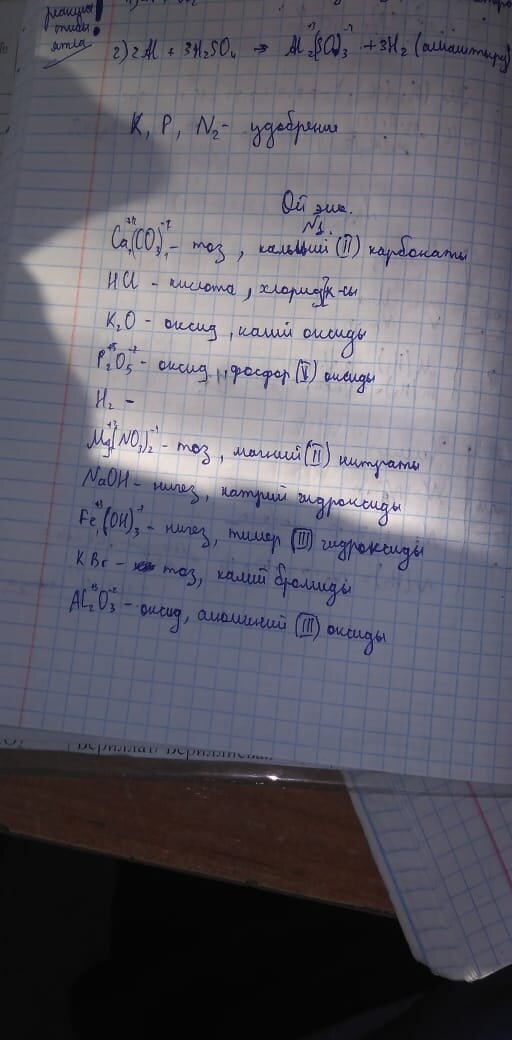 реакция
типы
ятла
2) 2Al + 3H₂SO₄ → Al₂⁺³(SO₄)₃⁻² + 3H₂ (алмаштыру)
K, P, N₂ - удобрения
Өй эше.
№1.
Ca₁⁺²(CO₃)₁⁻² - тоз, кальций (II) карбонаты
HCl - кислота, хлорид к-сы
K₂O - оксид, калий оксиды
P₂⁺⁵O₅⁻² - оксид, фосфор (V) оксиды
H₂ -
Mg⁺²(NO₃)₂⁻¹ - тоз, магний (II) нитраты
NaOH - нигез, натрий гидроксиды
Fe₁⁺³(OH)₃⁻¹ - нигез, тимер (III) гидроксиды
KBr - тоз, калий бромиды
Al₂⁺³O₃⁻² - оксид, алюминий (III) оксиды